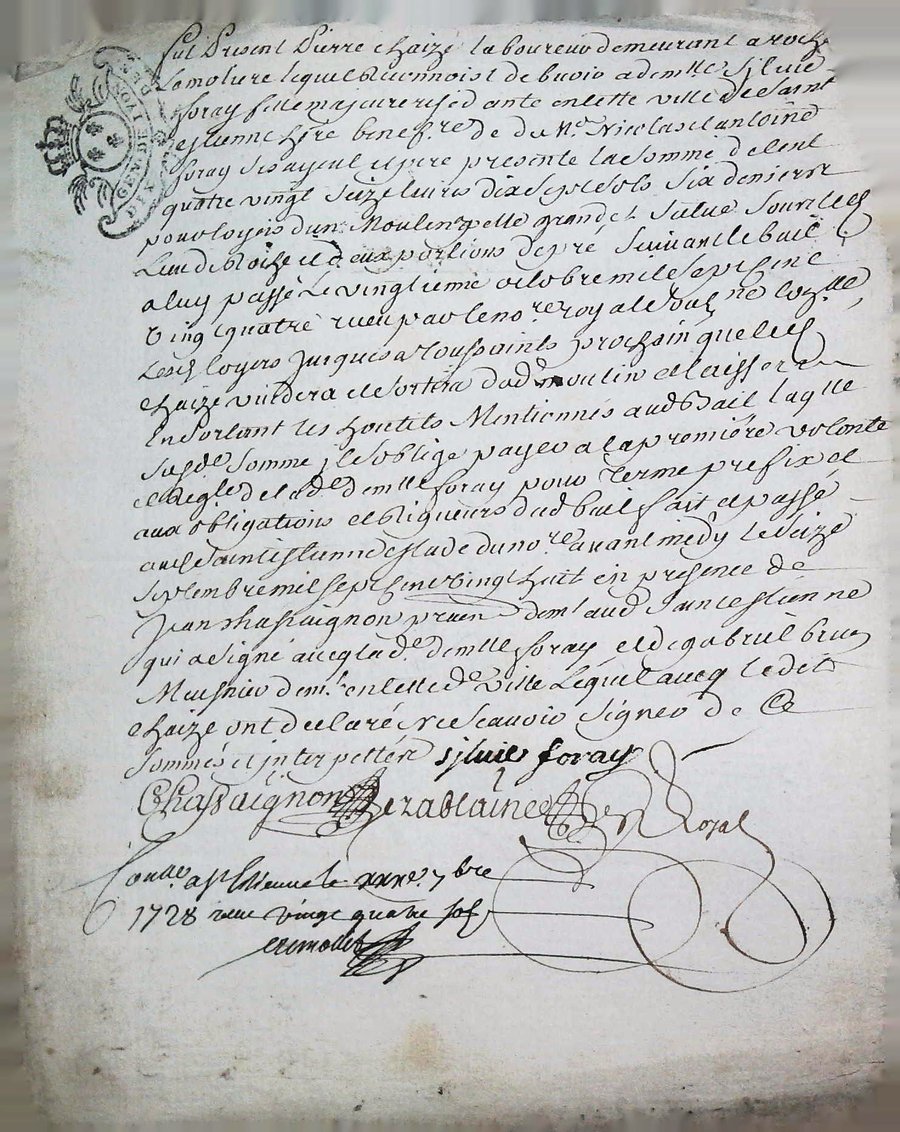 GEN. DE LYON
SIX DENIERS
Fut Present Pierre chaize laboureur demeurant a roche
Lamoliere lequel Reconnoist debvoir a demlle Silvie
foray fille majeure residante en cette ville de Saint
estienne here benefre de du Nre Nicolas et antoine
foray ses ayeul et pere presente la Somme de Cent
quatre vingt Seize livres dix Sept Sols Six deniers
pour loyers d'un Moulin appellé grand et Situé Sous le
Lieu de et deux portions de pré Suivant le bail
a luy passé Le vingtieme octobre mil Sept Cent
Vingt quatre receu par le nore royal
Lesd loyers jusques a toussaints prochain que led
chaize vuidera et Sortira dud moulin et laissera
En Sortant les houtils Mentionnés aud Bail laqlle
susde Somme il s'oblige payer a la premiere volonté
et Reqte de lade demlle foray pour terme prefix et
aux obligations et Rigueurs dud bail fait et passé
aud Saint estienne estude du nore avant midy le Seize
Septembre mil Sept Cent Vingt huit en presence de
Jean Chassaignon demt aud Saint estienne
qui a Signé avecq lade demlle foray, et de gabriel
Meusnier demt en cette de ville Lequel avecq ledit
chaize ont declaré Ne Scavoir Signer de Ce
Sommés et interpellés silvie foray
Chassaignon Dezablaine Nre Royal
Conlle a St Estienne le xxxe 7bre
1728 receu vingt quatre sols